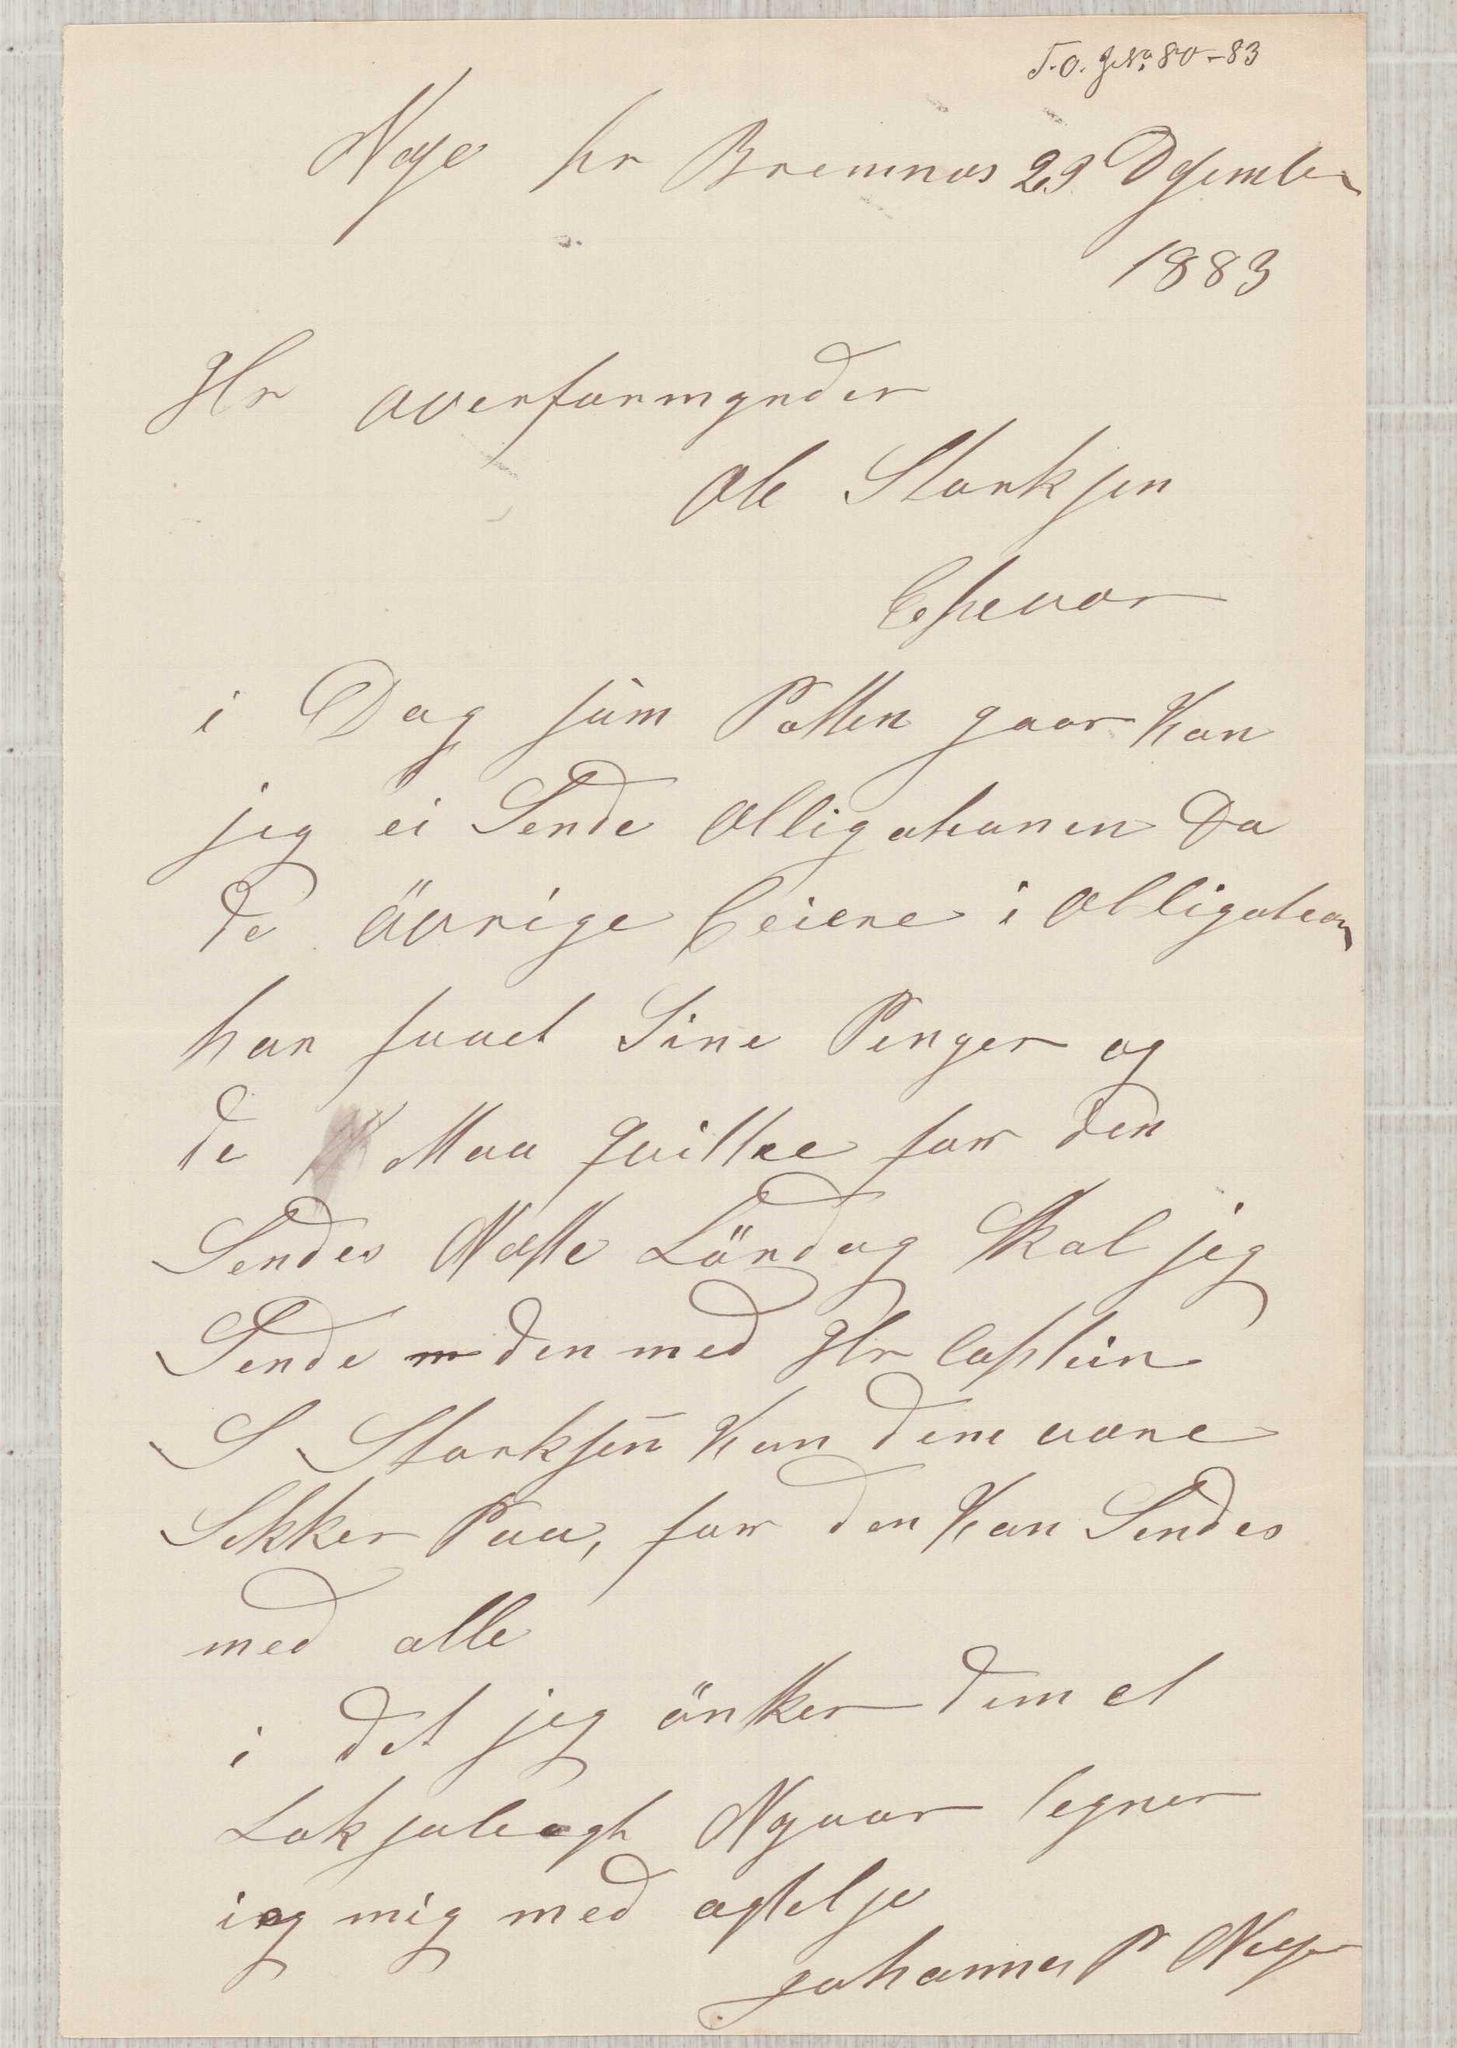 F.O. JNo. 80-83
Næse pr Bremnes 29 Desember
1883
Hr overformynder
Ole Storksen
Espevær
i Dag som Posten gaar Kan
jeg ei Sende Obligationen Da
de övrige Eeiere i obligation
har faaet Sine Penger og
de Maa Quittee for den
Sendes Næste Lördag Skal jeg
Sende den med Hr Captein
S Storksen Kan dem være
Sikker Paa, for den Kan Sendes
med alle
i det jeg önsker dem et
Nyaar tegner
jeg mig med agtelse
Johannes P Næse